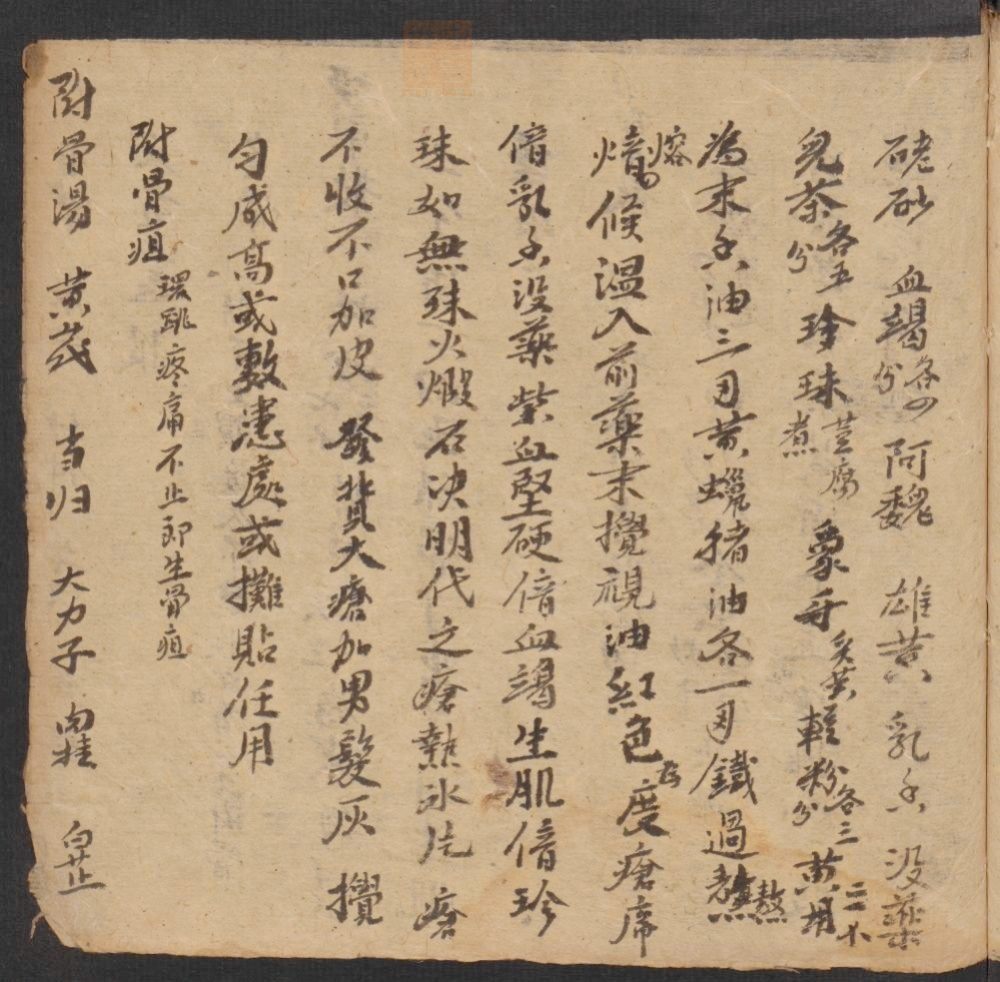 硓砂 血竭各四分 阿魏 雄黃 乳香 没藥
児茶各五分 珍珠荳腐煮 象牙炙黃 軽粉各三分 黄
為末香油三 黄蠟猪油各一 鐵過熬熬
熔候温入前藥末攪視油紅色為度瘡席
倍乳香没藥紫血堅硬倍血竭生肌倍珍
珠如無珠火煅石决明代之瘡熱氷片 瘡
不收不口加皮 發背大瘡加男髮灰 攪
匀成膏或敷患處或攤貼任用
附骨疽 環跳疼痛不止即生骨疽
附骨湯 黄茋 当归 大力子 肉桂 白芷